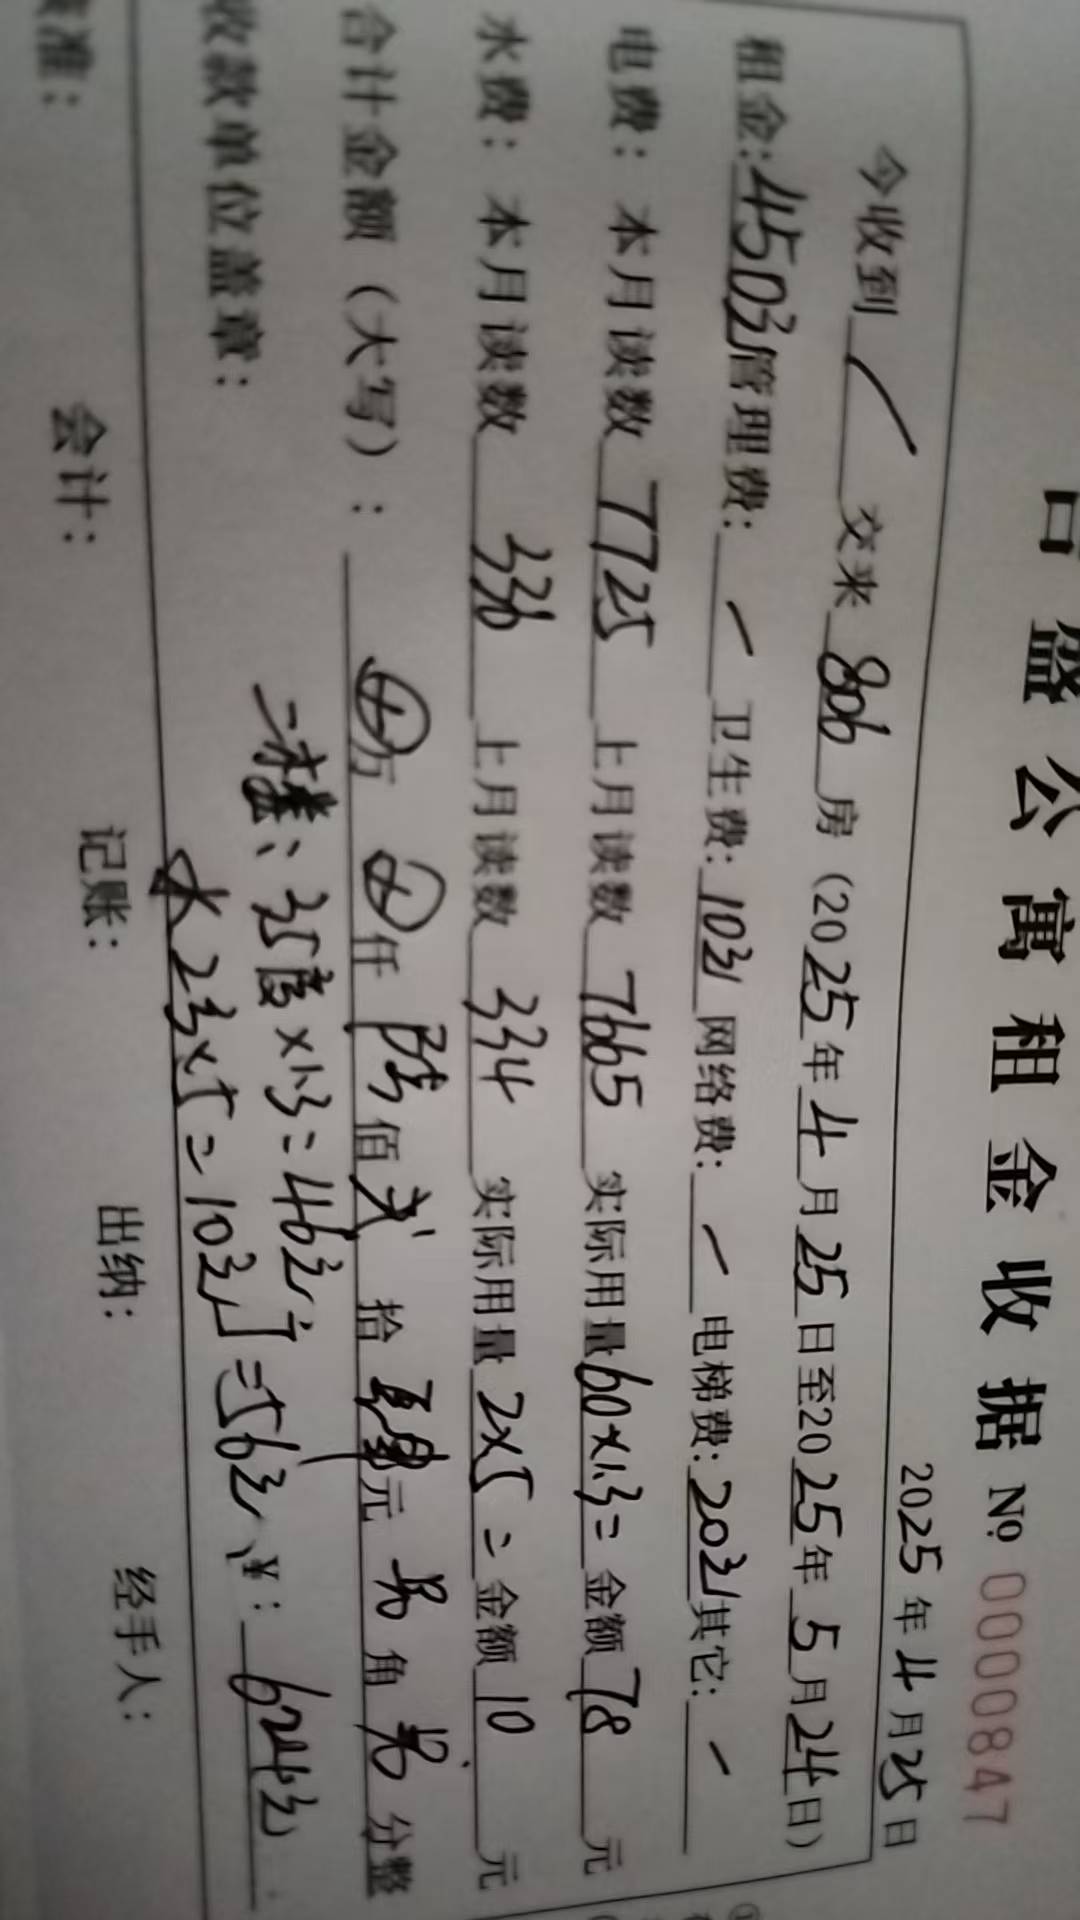 吉盛公寓租金收据 № 0000847
2025年4月25日
今收到 交来806房（2025年4月25日至2025年5月24日）
租金：450元管理费：— 卫生费：10元 网络费：— 电梯费：20元其它：—
电费：本月读数 7725 上月读数 7665 实际用量60×1.3=金额78元
水费：本月读数 336 上月读数 334 实际用量2×5=金额10元
合计金额（大写）： 万 仟 陆佰贰拾 元 角 分整
一楼：35度×1.3=46元
收款单位盖章： 水2 ×5=10元 =56元 ¥：624元
核准： 会计： 记账： 出纳： 经手人：